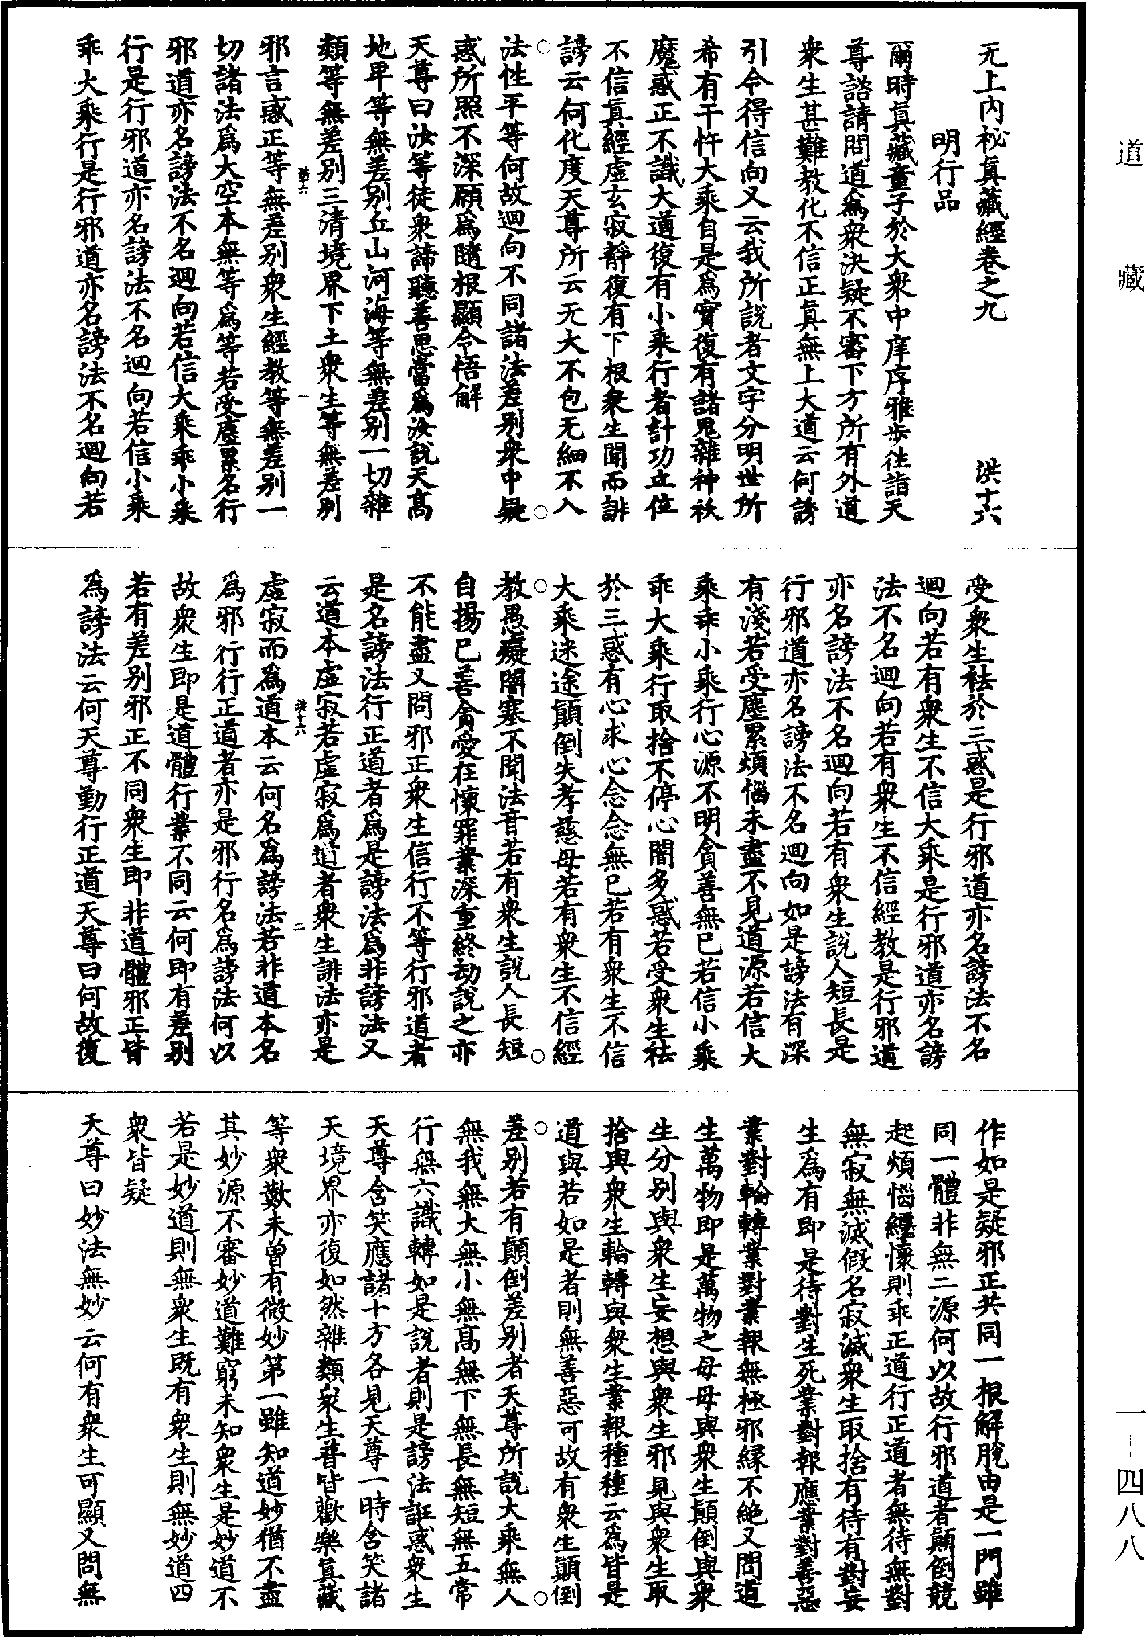 道藏
一-四八八
无上內祕真藏經卷之九 洪十六
明行品
爾時真藏童子於大衆中庠序雅步往詣天
尊諮請問道為衆決疑不審下方所有外道
衆生甚難教化不信正真無上大道云何謗
引令得信向又云我所說者文字分明世所
希有干忤大乘自是為實復有諸鬼雜神祅
魔惑正不識大道復有小乘行者計功立位
不信真經虛玄寂靜復有下根衆生聞而誹
謗云何化度天尊所云无大不包无細不入
法性平等何故迴向不同諸法差别衆中疑
惑所照不深願為隨根顯令悟解
天尊曰汝等徒衆諦聽善思當為汝說天高
地卑等無差别丘山河海等無差别一切雜
類等無差别三清境界下土衆生等無差别
邪言惑正等無差别衆生經教等無差别一
切諸法為大空本無等為等若受塵累名行
邪道亦名謗法不名迴向若信大乘乖小乘
行是行邪道亦名謗法不名迴向若信小乘
乖大乘行是行邪道亦名謗法不名迴向若
受衆生祛於三惑是行邪道亦名謗法不名
迴向若有衆生不信大乘是行邪道亦名謗
法不名迴向若有衆生不信經教是行邪道
亦名謗法不名迴向若有衆生說人短長是
行邪道亦名謗法不名迴向如是謗法有深
有淺若受塵累煩惱未盡不見道源若信大
乘乖小乘行心源不明貪善無已若信小乘
乖大乘行取捨不停心闇多惑若受衆生祛
於三惑有心求心念念無已若有衆生不信
大乘迷途顛倒失孝慈母若有衆生不信經
教愚癡闇塞不聞法音若有衆生說人長短
自揚已善貪愛在懷罪業深重終劫說之亦
不能盡又問邪正衆生信行不等行邪道者
是名謗法行正道者為是謗法為非謗法又
云道本虛寂若虛寂為道者衆生誹法亦是
虛寂而為道本云何名為謗法若非道本名
為邪行行正道者亦是邪行名為謗法何以
故衆生即是道體行業不同云何即有差别
若有差别邪正不同衆生即非道體邪正皆
為謗法云何天尊勤行正道天尊曰何故復
作如是疑邪正共同一根解脫由是一門雖
同一體非無二源何以故行邪道者顛倒競
起煩惱經懷則乖正道行正道者無待無對
無寂無滅假名寂滅衆生取捨有待有對妄
生為有即是待對生死業對報應業對善惡
業對輪轉業對業報無極邪緣不絕又問道
生萬物即是萬物之母母與衆生顛倒與衆
生分别與衆生妄想與衆生邪見與衆生取
捨與衆生輪轉與衆生業報種種云為皆是
道與若如是者則無善惡可故有衆生顛倒
差别若有顛倒差别者天尊所說大乘無人
無我無大無小無高無下無長無短無五常
行無六識轉如是說者則是謗法誑惑衆生
天尊含笑應諸十方各見天尊一時含笑諸
天境界亦復如然雜類衆生普皆歡樂真藏
等衆歎未曾有微妙第一雖知道妙猶不盡
其妙源不審妙道難窮未知衆生是妙道不
若是妙道則無衆生既有衆生則無妙道四
衆皆疑
天尊曰妙法無妙云何有衆生可顯又問無
洪十六 一
洪十六 二